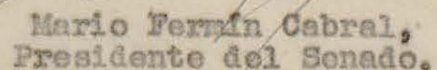 Mario Fermín Cabral,
Presidente del Senado.